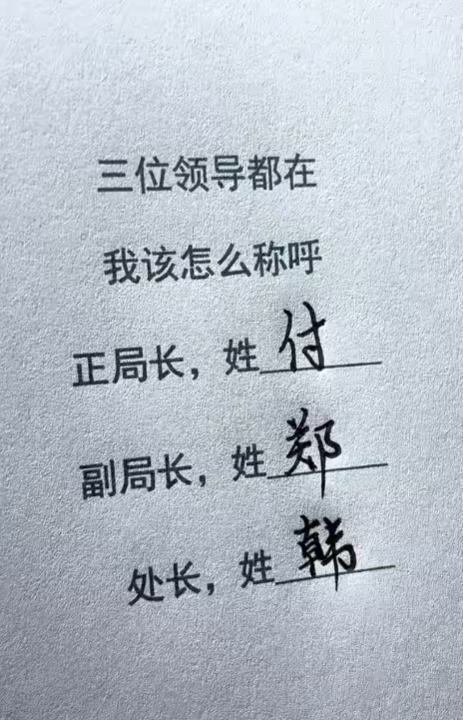 三位领导都在
我该怎么称呼
正局长，姓付
副局长，姓郑
处长，姓韩